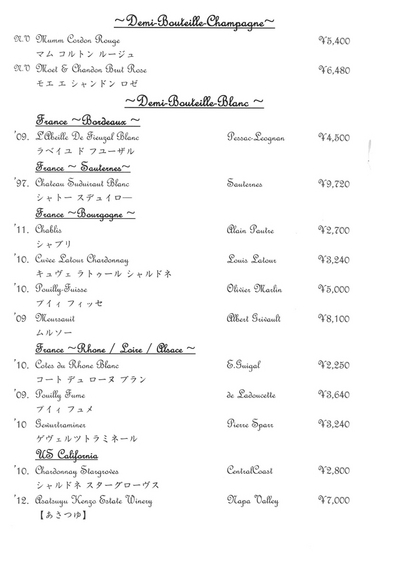 ~Demi-Bouteille-Champagne~
N.V Mumm Cordon Rouge ¥5,400
マム コルトン ルージュ
N.V Moet & Chandon Brut Rose ¥6,480
モエ エ シャンドン ロゼ
~Demi-Bouteille-Blanc ~
France ~Bordeaux ~
'09. L'Abeille De Fieuzal Blanc Pessac-Leognan ¥4,500
ラベイユ ド フューザル
France ~ Sauternes~
'97. Chateau Suduiraut Blanc Sauternes ¥9,720
シャトー スデュイロー
France ~Bourgogne ~
'11. Chablis Alain Pautre ¥2,700
シャブリ
'10. Cuvee Latour Chardonnay Louis Latour ¥3,240
キュヴェ ラトゥール シャルドネ
'10. Pouilly-Fuisse Olivier Marlin ¥5,000
プイィ フィッセ
'09 Meursault Albert Grivault ¥8,100
ムルソー
France ~Rhone / Loire / Alsace ~
'10. Cotes du Rhone Blanc E.Guigal ¥2,250
コート デュ ローヌ ブラン
'09. Pouilly Fume de Ladoucette ¥3,640
プイィ フュメ
'10 Gewurtraminer Pierre Sparr ¥3,240
ゲヴェルツトラミネール
US California
'10. Chardonnay Stargroves CentralCoast ¥2,800
シャルドネ スターグローヴス
'12. Asatsuyu Kenzo Estate Winery Napa Valley ¥7,000
【あさつゆ】